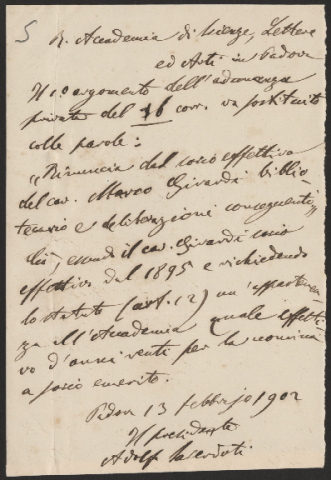 5
R. Accademia di Scienze, Lettere
ed Arti in Padova
Il 1o argomento dell'adunanza
privata del 16 corr. va sostituito
colle parole:
"Rinuncia del socio effettivo
del cav. Marco Girardi biblio-
tecario e deliberazioni conseguenti"
essendo il cav. Girardi socio
effettivo dal 1895 e richiedendo
lo statuto (art. 12) un'apparten-
za all'Accademia quale effetti-
vo d'anni venti per la nomina
a socio emerito.
Padova 13 febbrajo 1902
Il presidente
Adolfo Sacerdoti